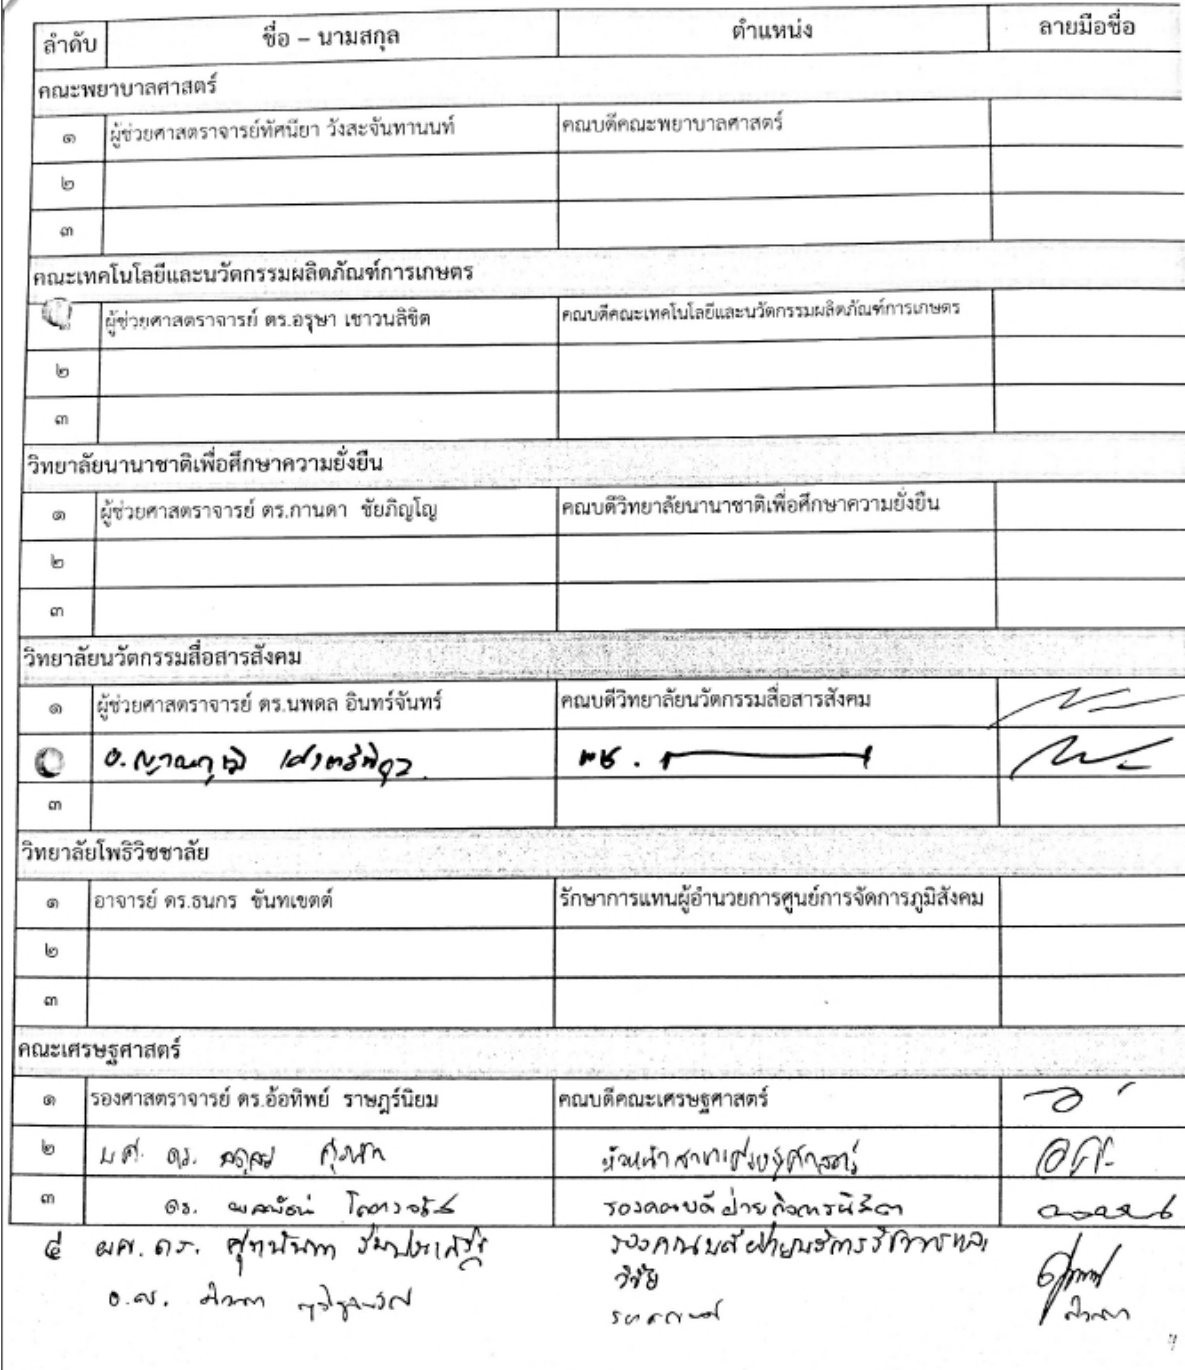 ลำดับ ชื่อ – นามสกุล ตำแหน่ง ลายมือชื่อ
คณะพยาบาลศาสตร์
๑ ผู้ช่วยศาสตราจารย์ทัศนียา วังสะจันทานนท์ คณบดีคณะพยาบาลศาสตร์
๒
๓
คณะเทคโนโลยีและนวัตกรรมผลิตภัณฑ์การเกษตร
ผู้ช่วยศาสตราจารย์ ดร.อรุษา เชาวนลิขิต คณบดีคณะเทคโนโลยีและนวัตกรรมผลิตภัณฑ์การเกษตร
๒
๓
วิทยาลัยนานาชาติเพื่อศึกษาความยั่งยืน
๑ ผู้ช่วยศาสตราจารย์ ดร.กานดา ชัยภิญโญ คณบดีวิทยาลัยนานาชาติเพื่อศึกษาความยั่งยืน
๒
๓
วิทยาลัยนวัตกรรมสื่อสารสังคม
๑ ผู้ช่วยศาสตราจารย์ ดร.นพดล อินทร์จันทร์ คณบดีวิทยาลัยนวัตกรรมสื่อสารสังคม
อ.
๓
วิทยาลัยโพธิวิชชาลัย
๑ อาจารย์ ดร.ธนกร ขันทเขตต์ รักษาการแทนผู้อำนวยการศูนย์การจัดการภูมิสังคม
๒
๓
คณะเศรษฐศาสตร์
๑ รองศาสตราจารย์ ดร.อ้อทิพย์ ราษฎร์นิยม คณบดีคณะเศรษฐศาสตร์
๒ ดร. หัวหน้าสาขาเศรษฐศาสตร์
๓ ดร. รองคณบดีฝ่ายกิจการนิสิต
๔ ผศ.ดร. รองคณบดีฝ่ายบริหารวิชาการและ
วิจัย